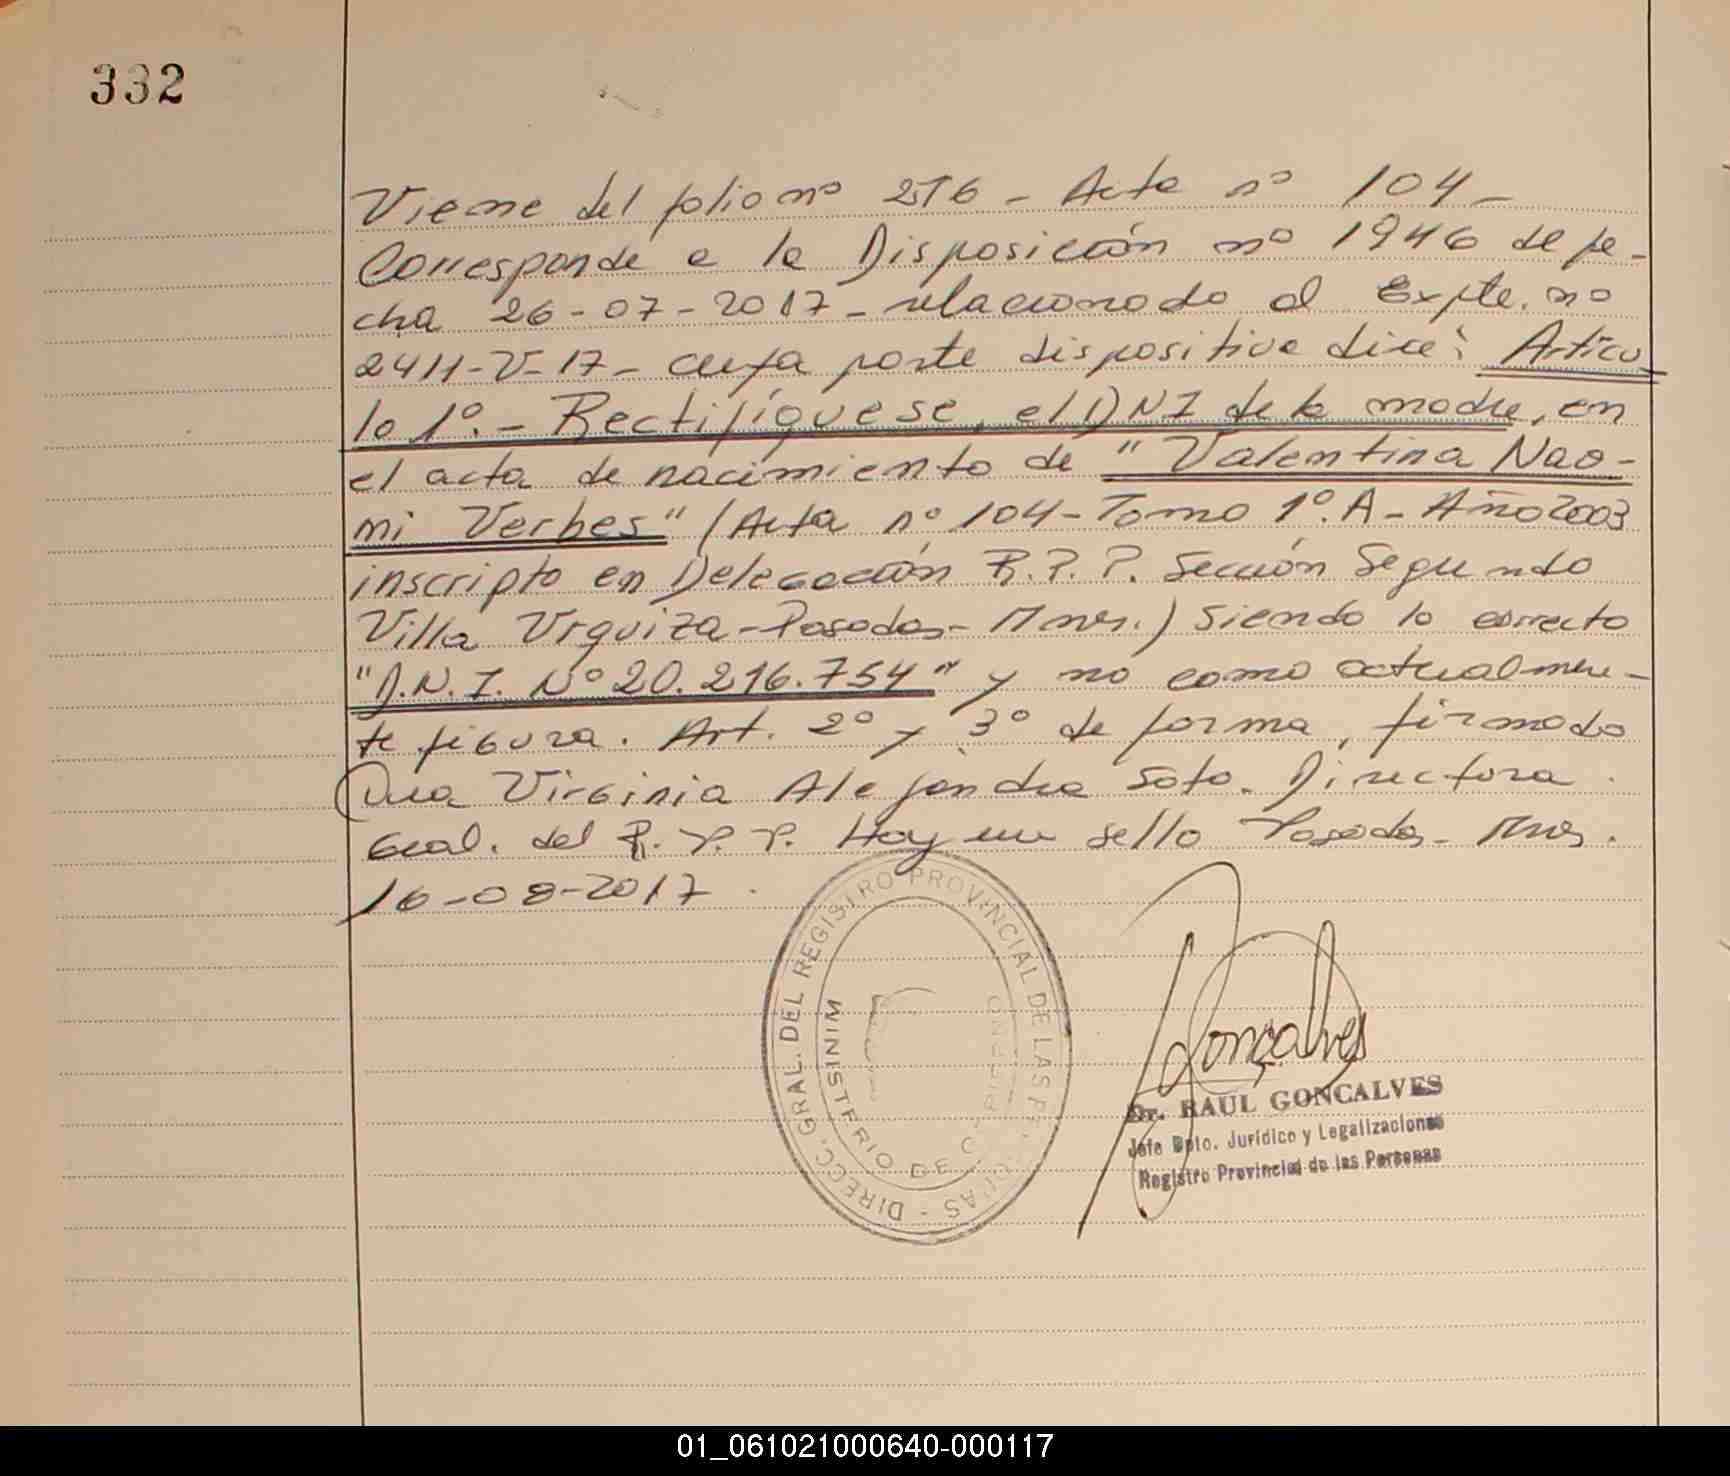 332
Viene del folio nº 276 - Acta nº 104 -
Corresponde a la Disposición nº 1946 de fe-
cha 26-07-2017 - relacionado al Expte. nº
2411-V-17 - cuya parte dispositiva dice: Artícu
lo 1º.- Rectifíquese, el DNI de la madre, en
el acta de nacimiento de "Valentina Nao-
mi Verbes" (Acta nº 104 - Tomo 1º.A - Año 2003
inscripto en Delegación R.P.P. Sección Segundo
Villa Urquiza - Posadas - Mnes.) Siendo lo correcto
"D.N.I. Nº 20.216.754" y no como actualmen-
te figura. Art. 2º y 3º de forma, firmado
Dra Virginia Alejandra Soto. Directora
Gral. del R.P.P. Hay un sello Posadas - Mnes.
16-08-2017.
DIRECC. GRAL. DEL REGISTRO PROVINCIAL DE LAS
MINISTERIO DE
Gonçalves
Dr. RAUL GONCALVES
Jefe Dpto. Jurídico y Legalizaciones
Registro Provincial de las Personas
01_061021000640-000117